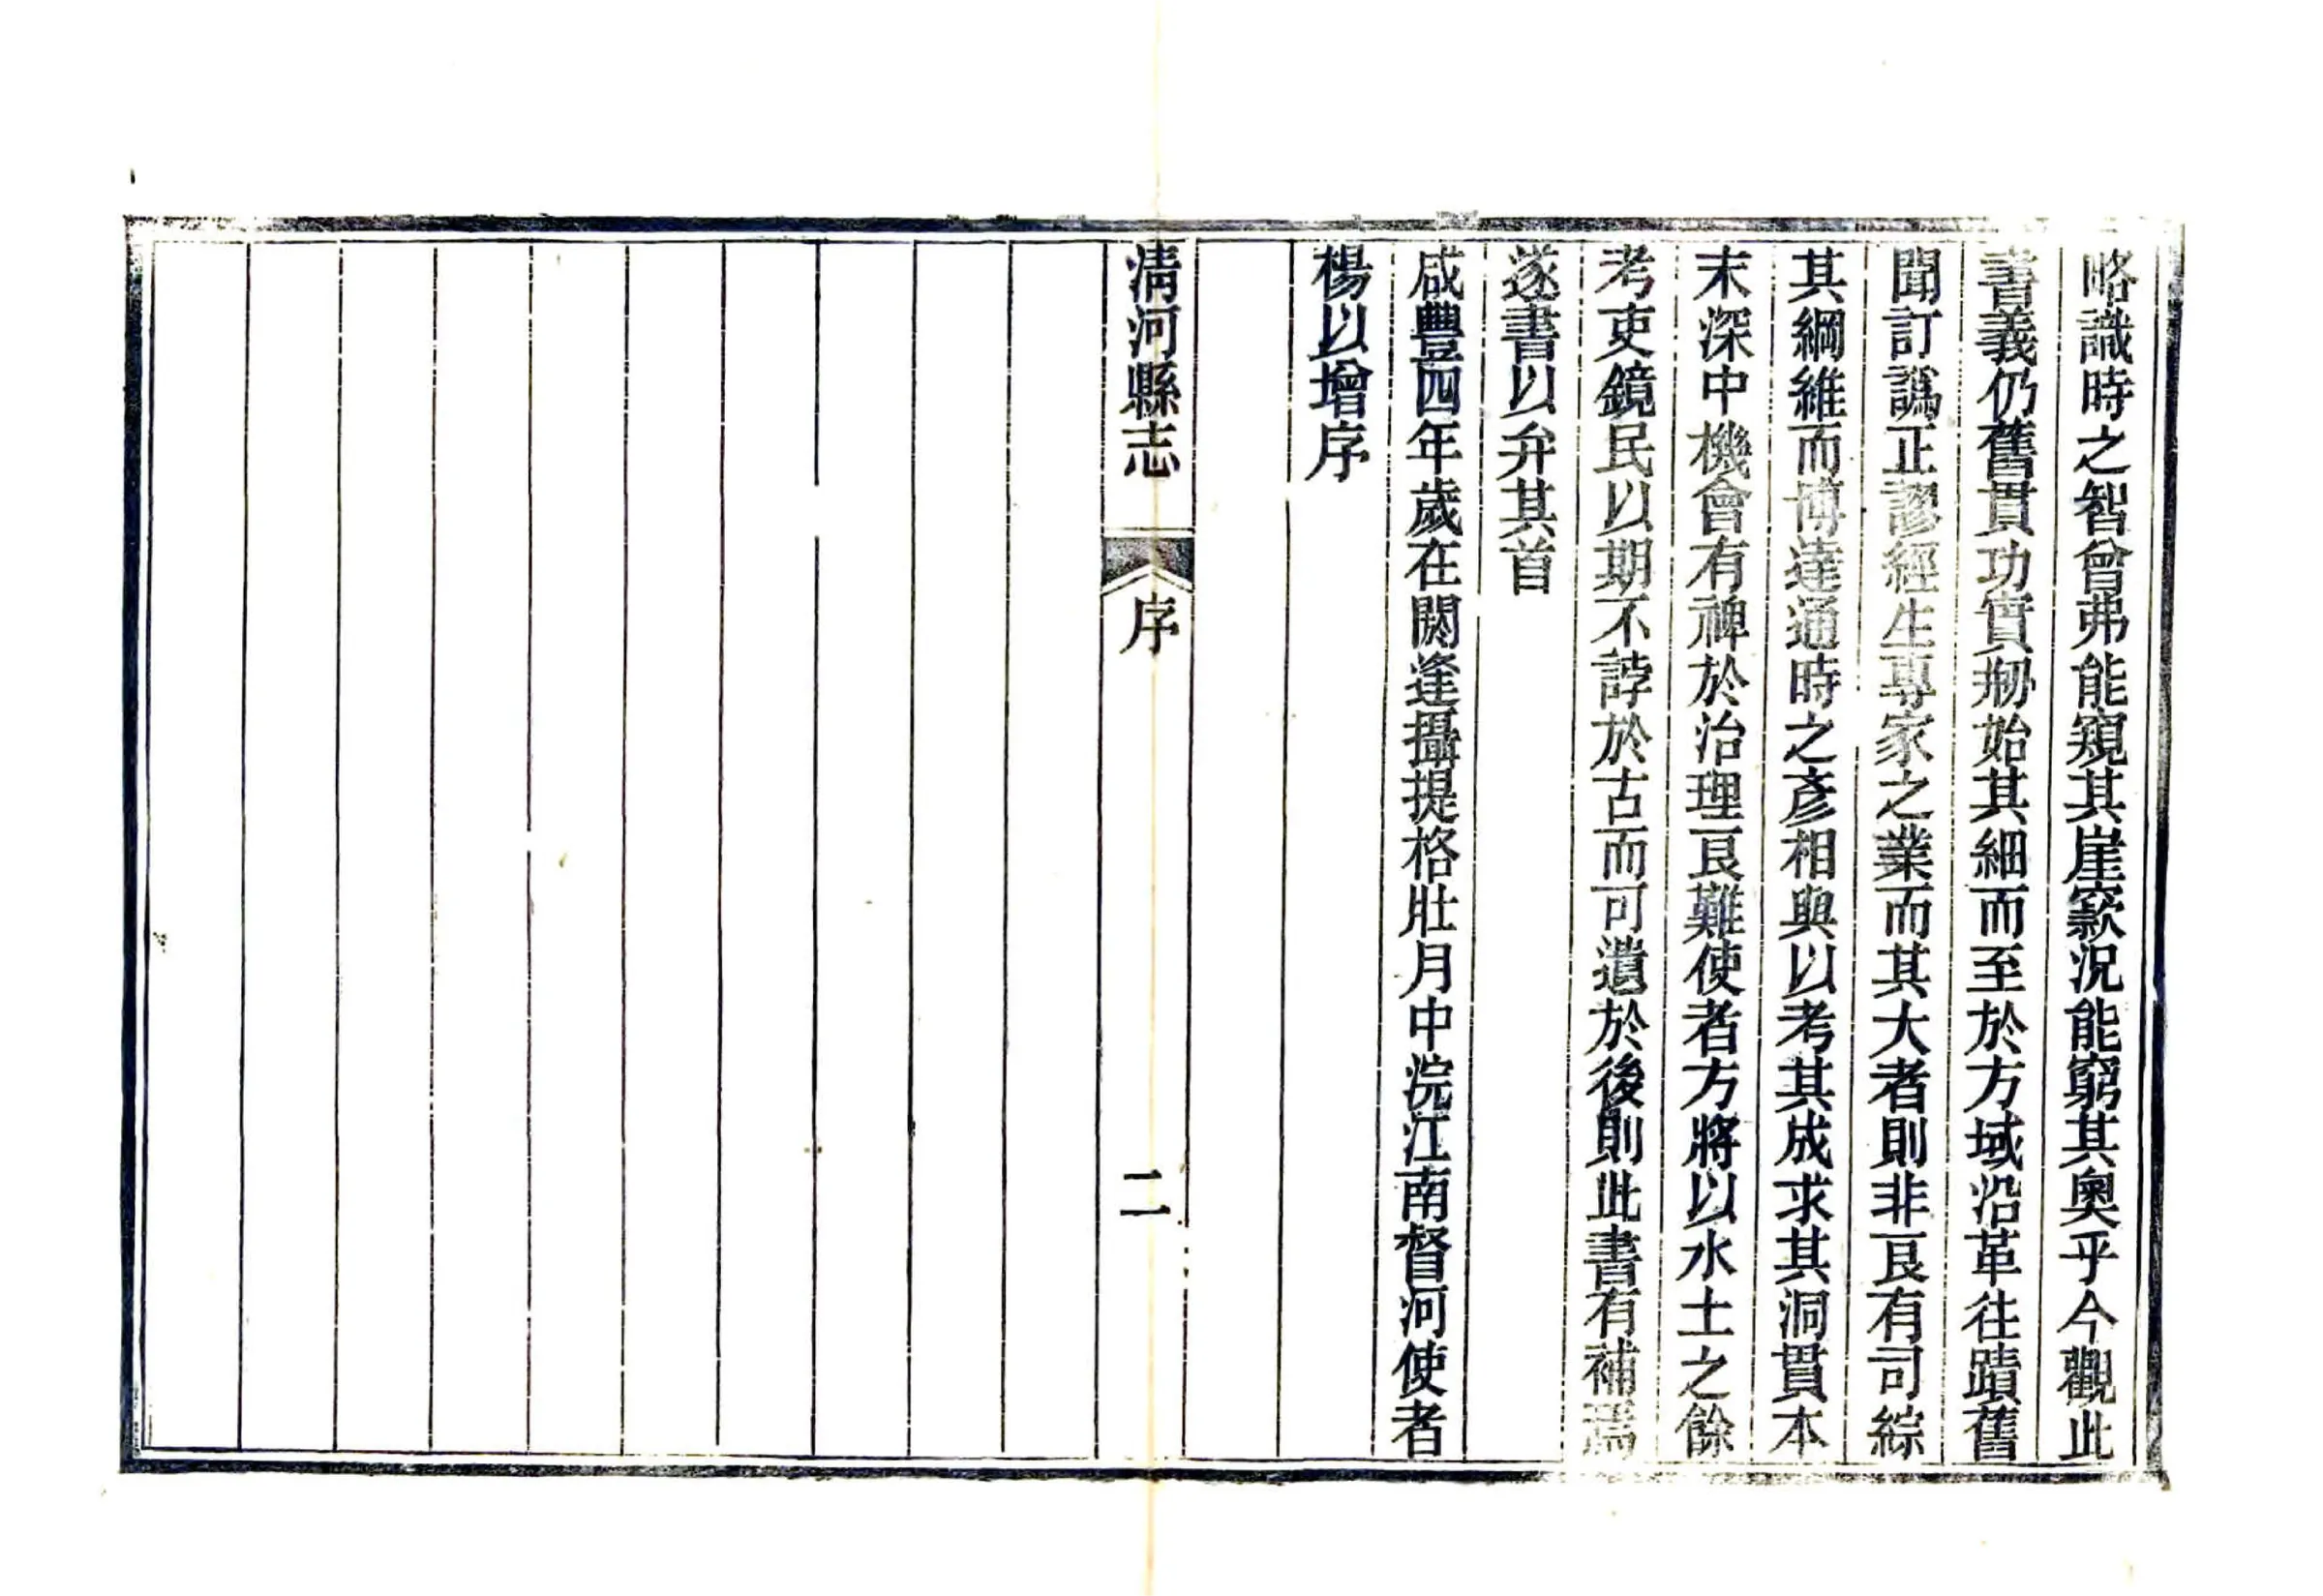 略識時之智曾弗能窺其崖窾況能窮其奧乎今觀此
書義仍舊貫功實剏始其細而至於方域沿革往蹟舊
聞訂譌正謬經生專家之業而其大者則非良有司綜
其綱維而博達通時之彥相與以考其成求其洞貫本
末深中機會有裨於治理良難使者方將以水土之餘
考吏鏡民以期不誖於古而可遺於後則此書有補焉
遂書以弁其首
咸豐四年歲在閼逢攝提格壯月中浣江南督河使者
楊以增序
淸河縣志 序 二